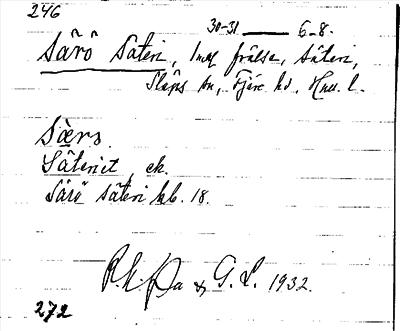 246
30-31 —— 6-8.
Särö Säteri, 1 mtl frälse, säteri,
Släps sn, Fjäre hd, Hall. l.
Särs
Säteriet, ek.
Särö säteri kb. 18.
& G. L. 1932.
272